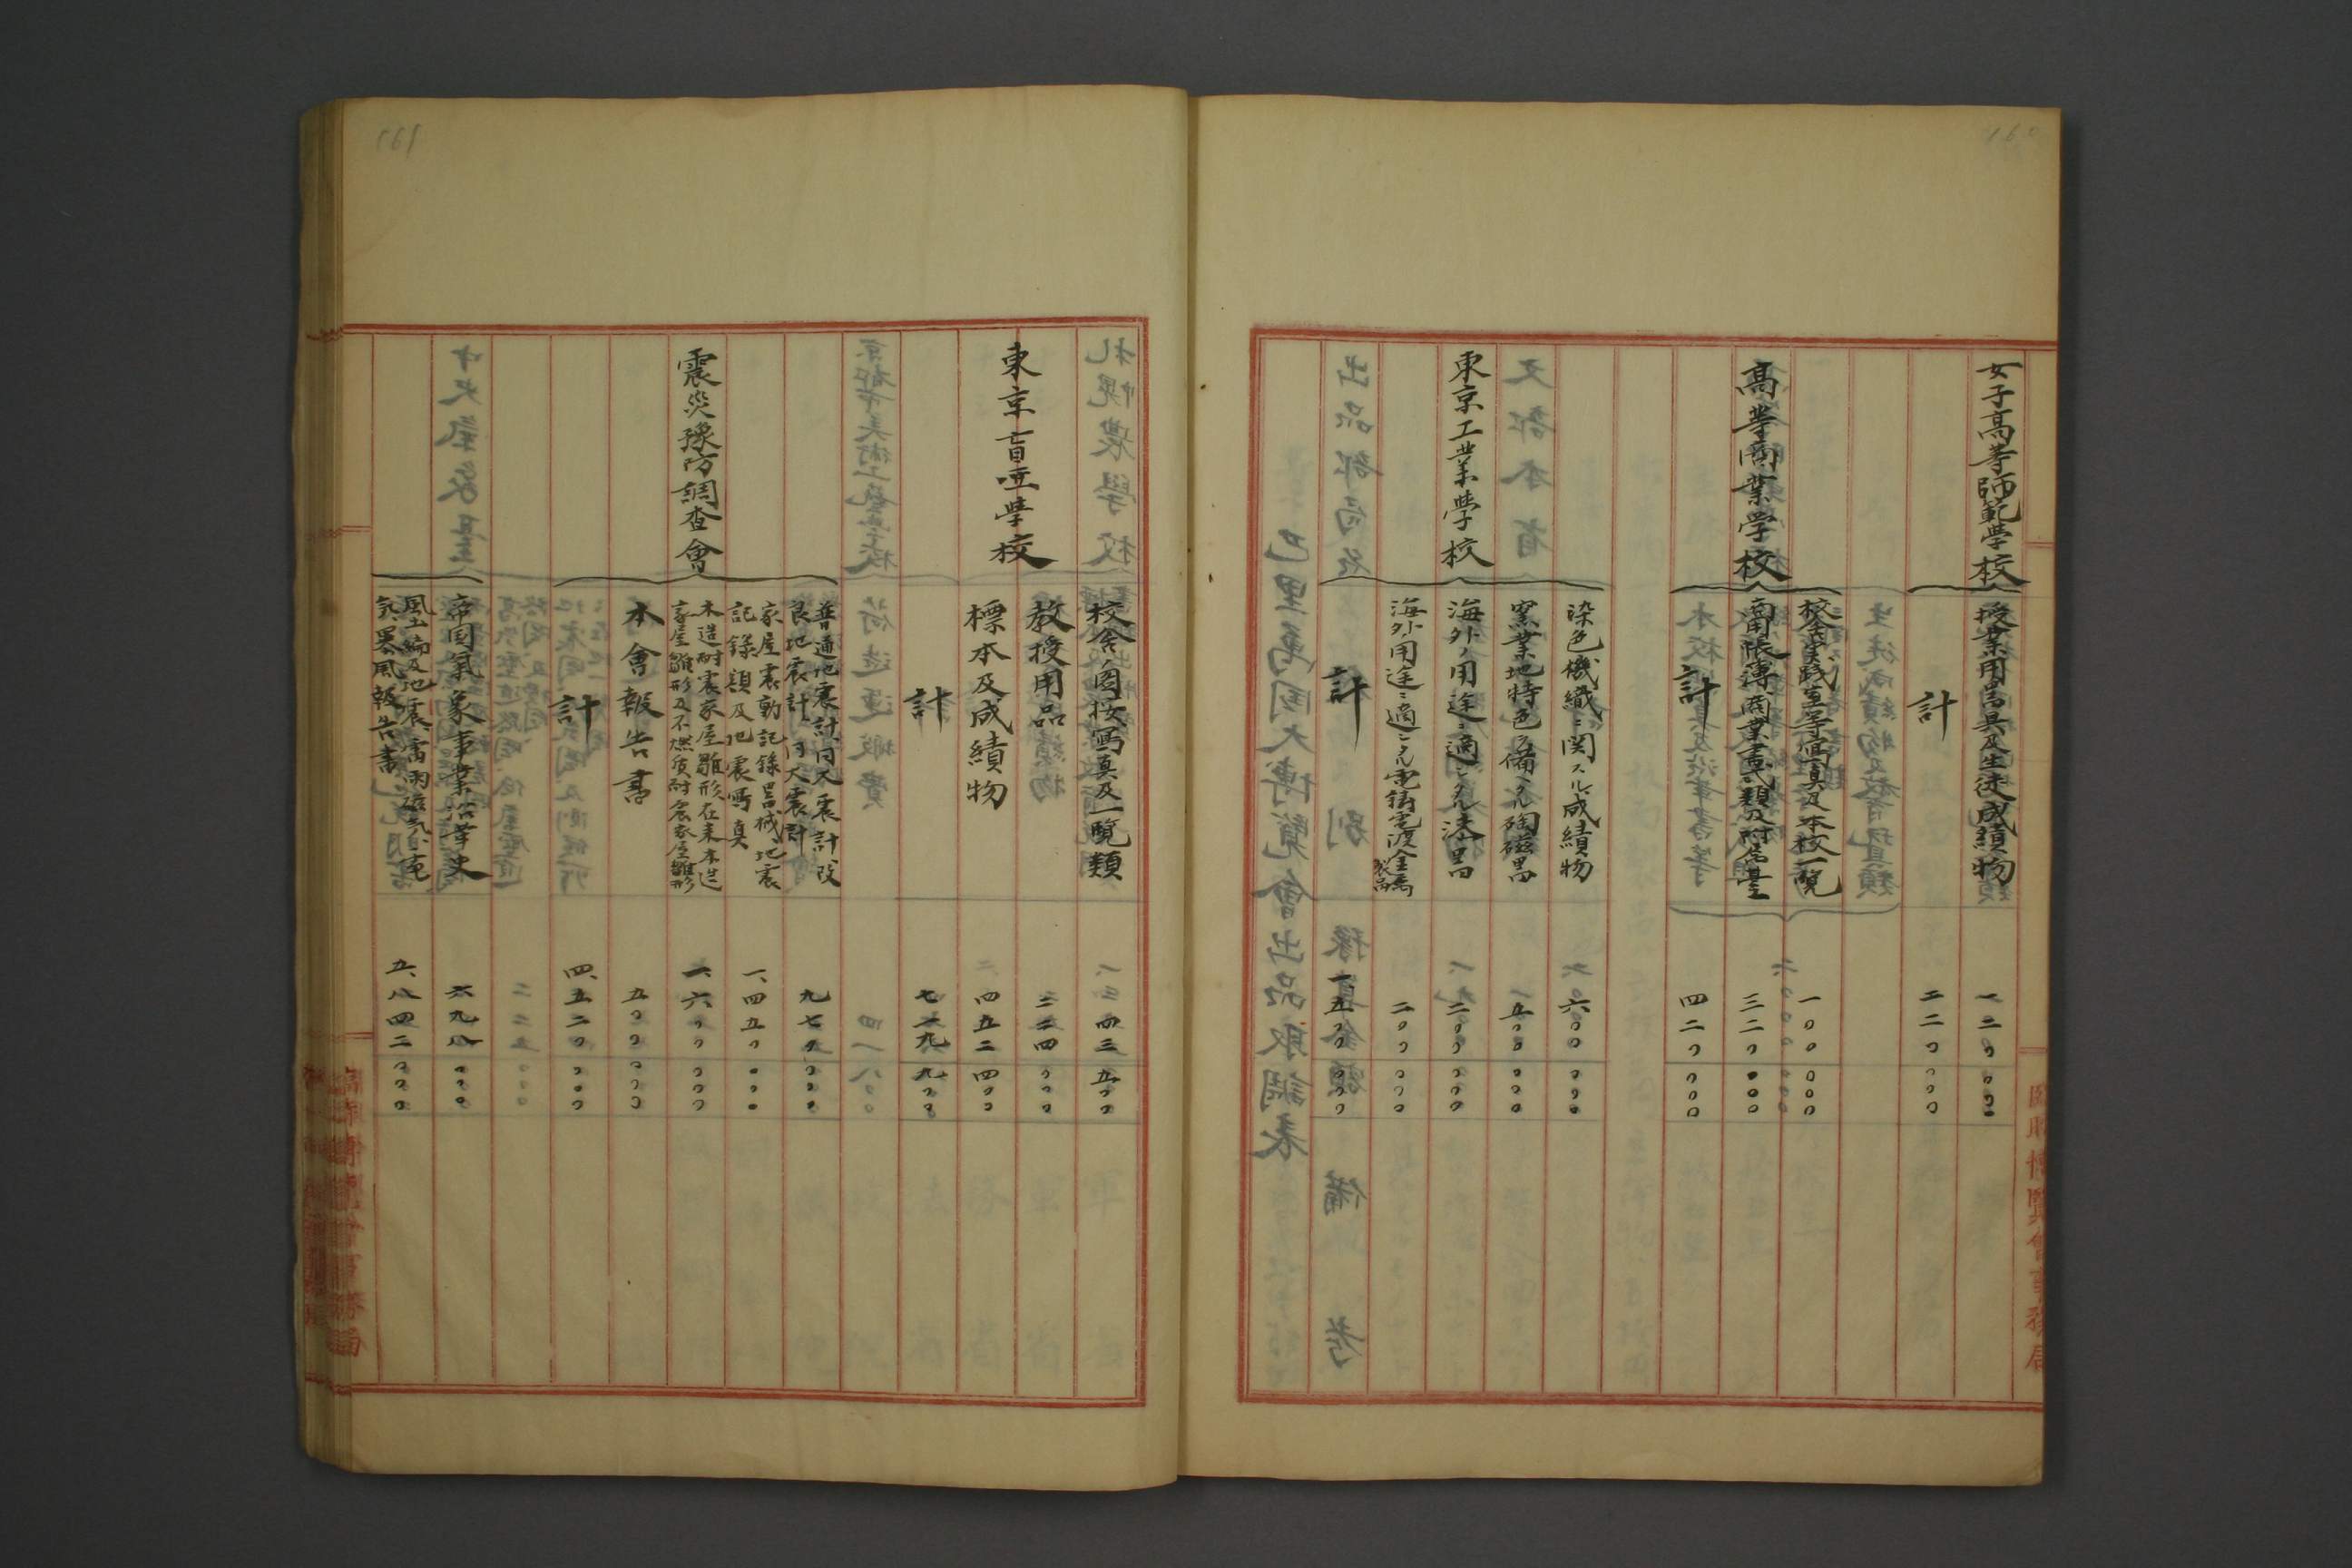 160
女子高等師範学校
授業用器具及生徒成績物
一二〇〇〇〇
計
二二〇〇〇〇
高等商業学校
校舎実践室等写真及本校一覧
一〇〇〇〇〇
商用帳簿商業書式類及附属臺
三二〇〇〇〇
計
四二〇〇〇〇
東京工業学校
染色機織ニ関スル成績物
六〇〇〇〇〇
窯業地特色ヲ備ヘタル陶磁器
五〇〇〇〇〇
海外ノ用途ニ適シタル漆器
二〇〇〇〇〇
海外ノ用途ニ適シタル電鋳電渡金属製品
二〇〇〇〇〇
計
一、五〇〇〇〇〇
臨時博覧會事務局
161
東京盲唖学校
校舎ノ図按写真及一覧類
四三五〇〇
教授用品
二二四〇〇〇
標本及成績物
四五二四〇〇
計
七一九九〇〇
震災豫防調査會
普通地震計、同大震計改良地震計、同大震計
九七〇〇〇〇
家屋震動記録器械地震記録額及地震写真
一、四五〇〇〇〇
木造耐震家屋雛形在来木造家屋雛形及不燃質耐震家屋雛形
一、六〇〇〇〇〇
本會報告書
五〇〇〇〇〇
計
四、五二〇〇〇〇
帝国氣象事業沿革史
六九八〇〇〇
五、八四二〇〇〇